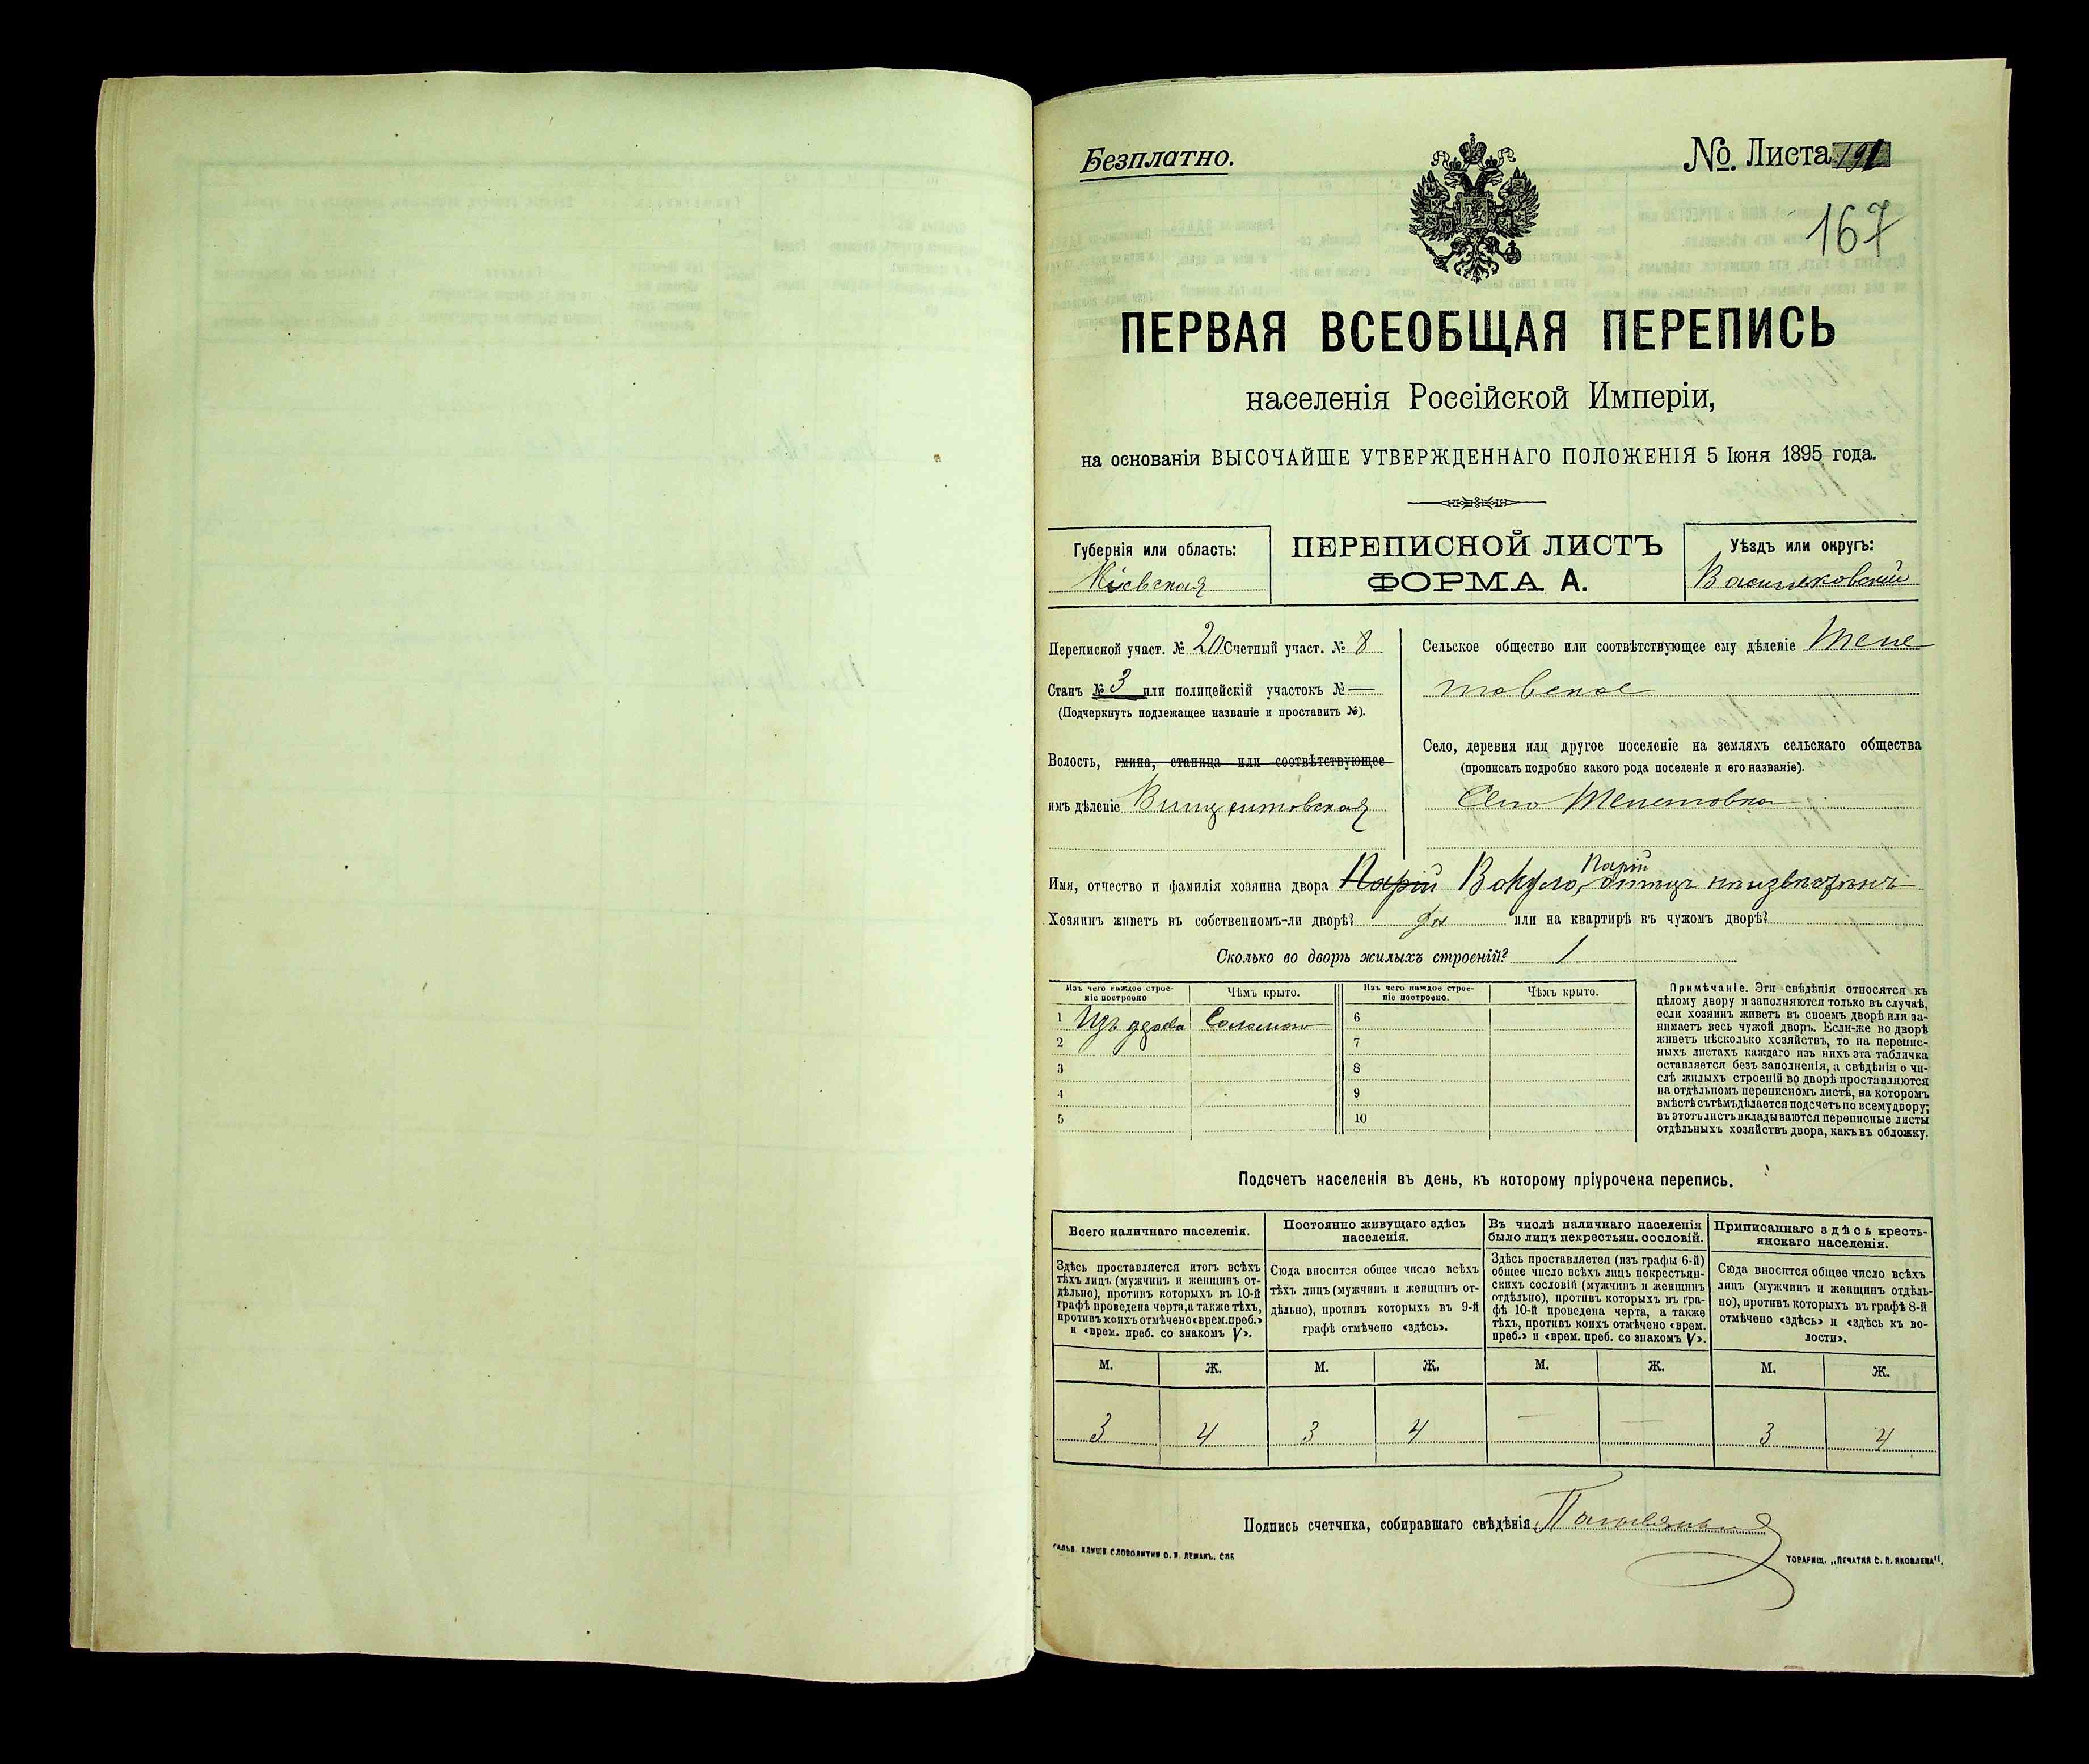 Безплатно.
№. Листа 191
167
ПЕРВАЯ ВСЕОБЩАЯ ПЕРЕПИСЬ
населенія Россійской Имперіи,
на основаніи ВЫСОЧАЙШЕ УТВЕРЖДЕННАГО ПОЛОЖЕНІЯ 5 Іюня 1895 года.
Губернія или область:
Кіевская
ПЕРЕПИСНОЙ ЛИСТЪ
ФОРМА А.
Уѣздъ или округъ:
Васильковскій
Переписной участ. № 20 Счетный участ. № 8
Станъ № 3 или полицейскій участокъ № —
(Подчеркнуть подлежащее названіе и проставить №).
Волость, гмина, станица или соотвѣтствующее
имъ дѣленіе Винцентовская
Сельское общество или соотвѣтствующее ему дѣленіе
Село, деревня или другое поселеніе на земляхъ сельскаго общества
(прописать подробно какого рода поселеніе и его названіе).
Село
Парій
Имя, отчество и фамилія хозяина двора Парій Вакула,
Хозяинъ живетъ въ собственномъ-ли дворѣ? да или на квартирѣ въ чужомъ дворѣ?
Сколько во дворѣ жилыхъ строеній? 1
Изъ чего каждое строе-
ніе построено
Чѣмъ крыто.
Изъ чего каждое строе-
ніе построено.
Чѣмъ крыто.
1 Изъ дерева Соломою 6
2 7
3 8
4 9
5 10
Примѣчаніе. Эти свѣдѣнія относятся къ
цѣлому двору и заполняются только въ случаѣ,
если хозяинъ живетъ въ своемъ дворѣ или за-
нимаетъ весь чужой дворъ. Если-же во дворѣ
живетъ нѣсколько хозяйствъ, то на перепис-
ныхъ листахъ каждаго изъ нихъ эта табличка
оставляется безъ заполненія, а свѣдѣнія о чи-
слѣ жилыхъ строеній во дворѣ проставляются
на отдѣльномъ переписномъ листѣ, на которомъ
вмѣстѣ съ тѣмъ дѣлается подсчетъ по всему двору;
въ этотъ листъ вкладываются переписные листы
отдѣльныхъ хозяйствъ двора, какъ въ обложку.
Подсчетъ населенія въ день, къ которому пріурочена перепись.
Всего наличнаго населенія.
Здѣсь проставляется итогъ всѣхъ
тѣхъ лицъ (мужчинъ и женщинъ от-
дѣльно), противъ которыхъ въ 10-й
графѣ проведена черта, а также тѣхъ,
противъ коихъ отмѣчено «врем. преб.»
и «врем. преб. со знакомъ V».
Постоянно живущаго здѣсь
населенія.
Сюда вносится общее число всѣхъ
тѣхъ лицъ (мужчинъ и женщинъ от-
дѣльно), противъ которыхъ въ 9-й
графѣ отмѣчено «здѣсь».
Въ числѣ наличнаго населенія
было лицъ некрестьян. сословій.
Здѣсь проставляется (изъ графы 6-й)
общее число всѣхъ лицъ некрестьян-
скихъ сословій (мужчинъ и женщинъ
отдѣльно), противъ которыхъ въ гра-
фѣ 10-й проведена черта, а также
тѣхъ, противъ коихъ отмѣчено «врем.
преб.» и «врем. преб. со знакомъ V».
Приписаннаго здѣсь кресть-
янскаго населенія.
Сюда вносится общее число всѣхъ
лицъ (мужчинъ и женщинъ отдѣль-
но), противъ которыхъ въ графѣ 8-й
отмѣчено «здѣсь» и «здѣсь къ во-
лости».
М. Ж. М. Ж. М. Ж. М. Ж.
3 4 3 4 — — 3 4
Подпись счетчика, собиравшаго свѣдѣнія
ГАЛЬВ. КЛИШЕ СЛОВОЛИТНИ О. И. ЛЕМАНЪ, СПБ
ТОВАРИЩ. „ПЕЧАТНЯ С. П. ЯКОВЛЕВА“.